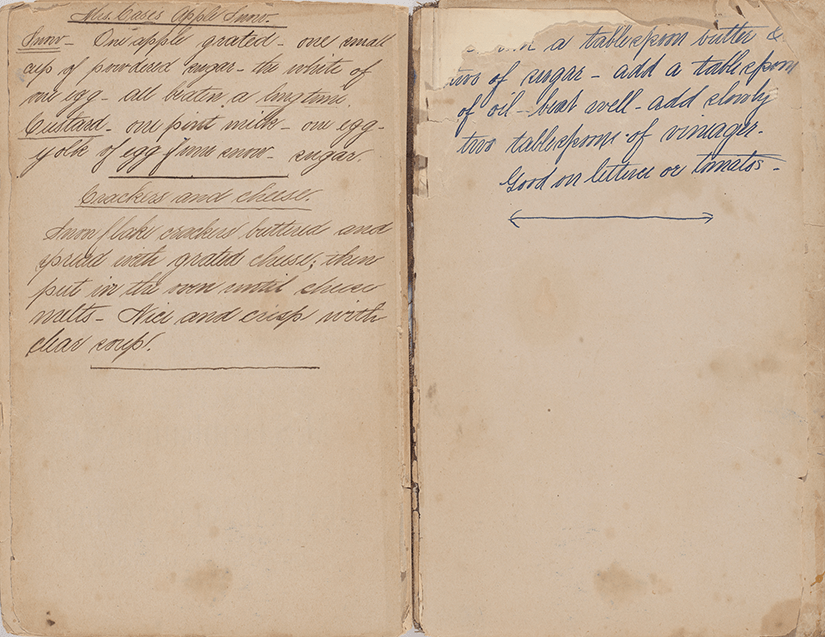 Mrs. Cases Apple Snow.
Snow - One apple grated - one small
cup of powdered sugar - the white of
one egg - all beaten a long time.
Custard - one pint milk - one egg -
yolk of egg from snow - sugar.
Crackers and cheese.
Snow flake crackers buttered and
spread with grated cheese; then
put in the oven until cheese
melts - Nice and crisp with
clear soup.
a tablespoon butter &
two of sugar - add a tablespoon
of oil - beat well - add slowly
two tablespoons of vinegar.
Good on lettuce or tomatos -